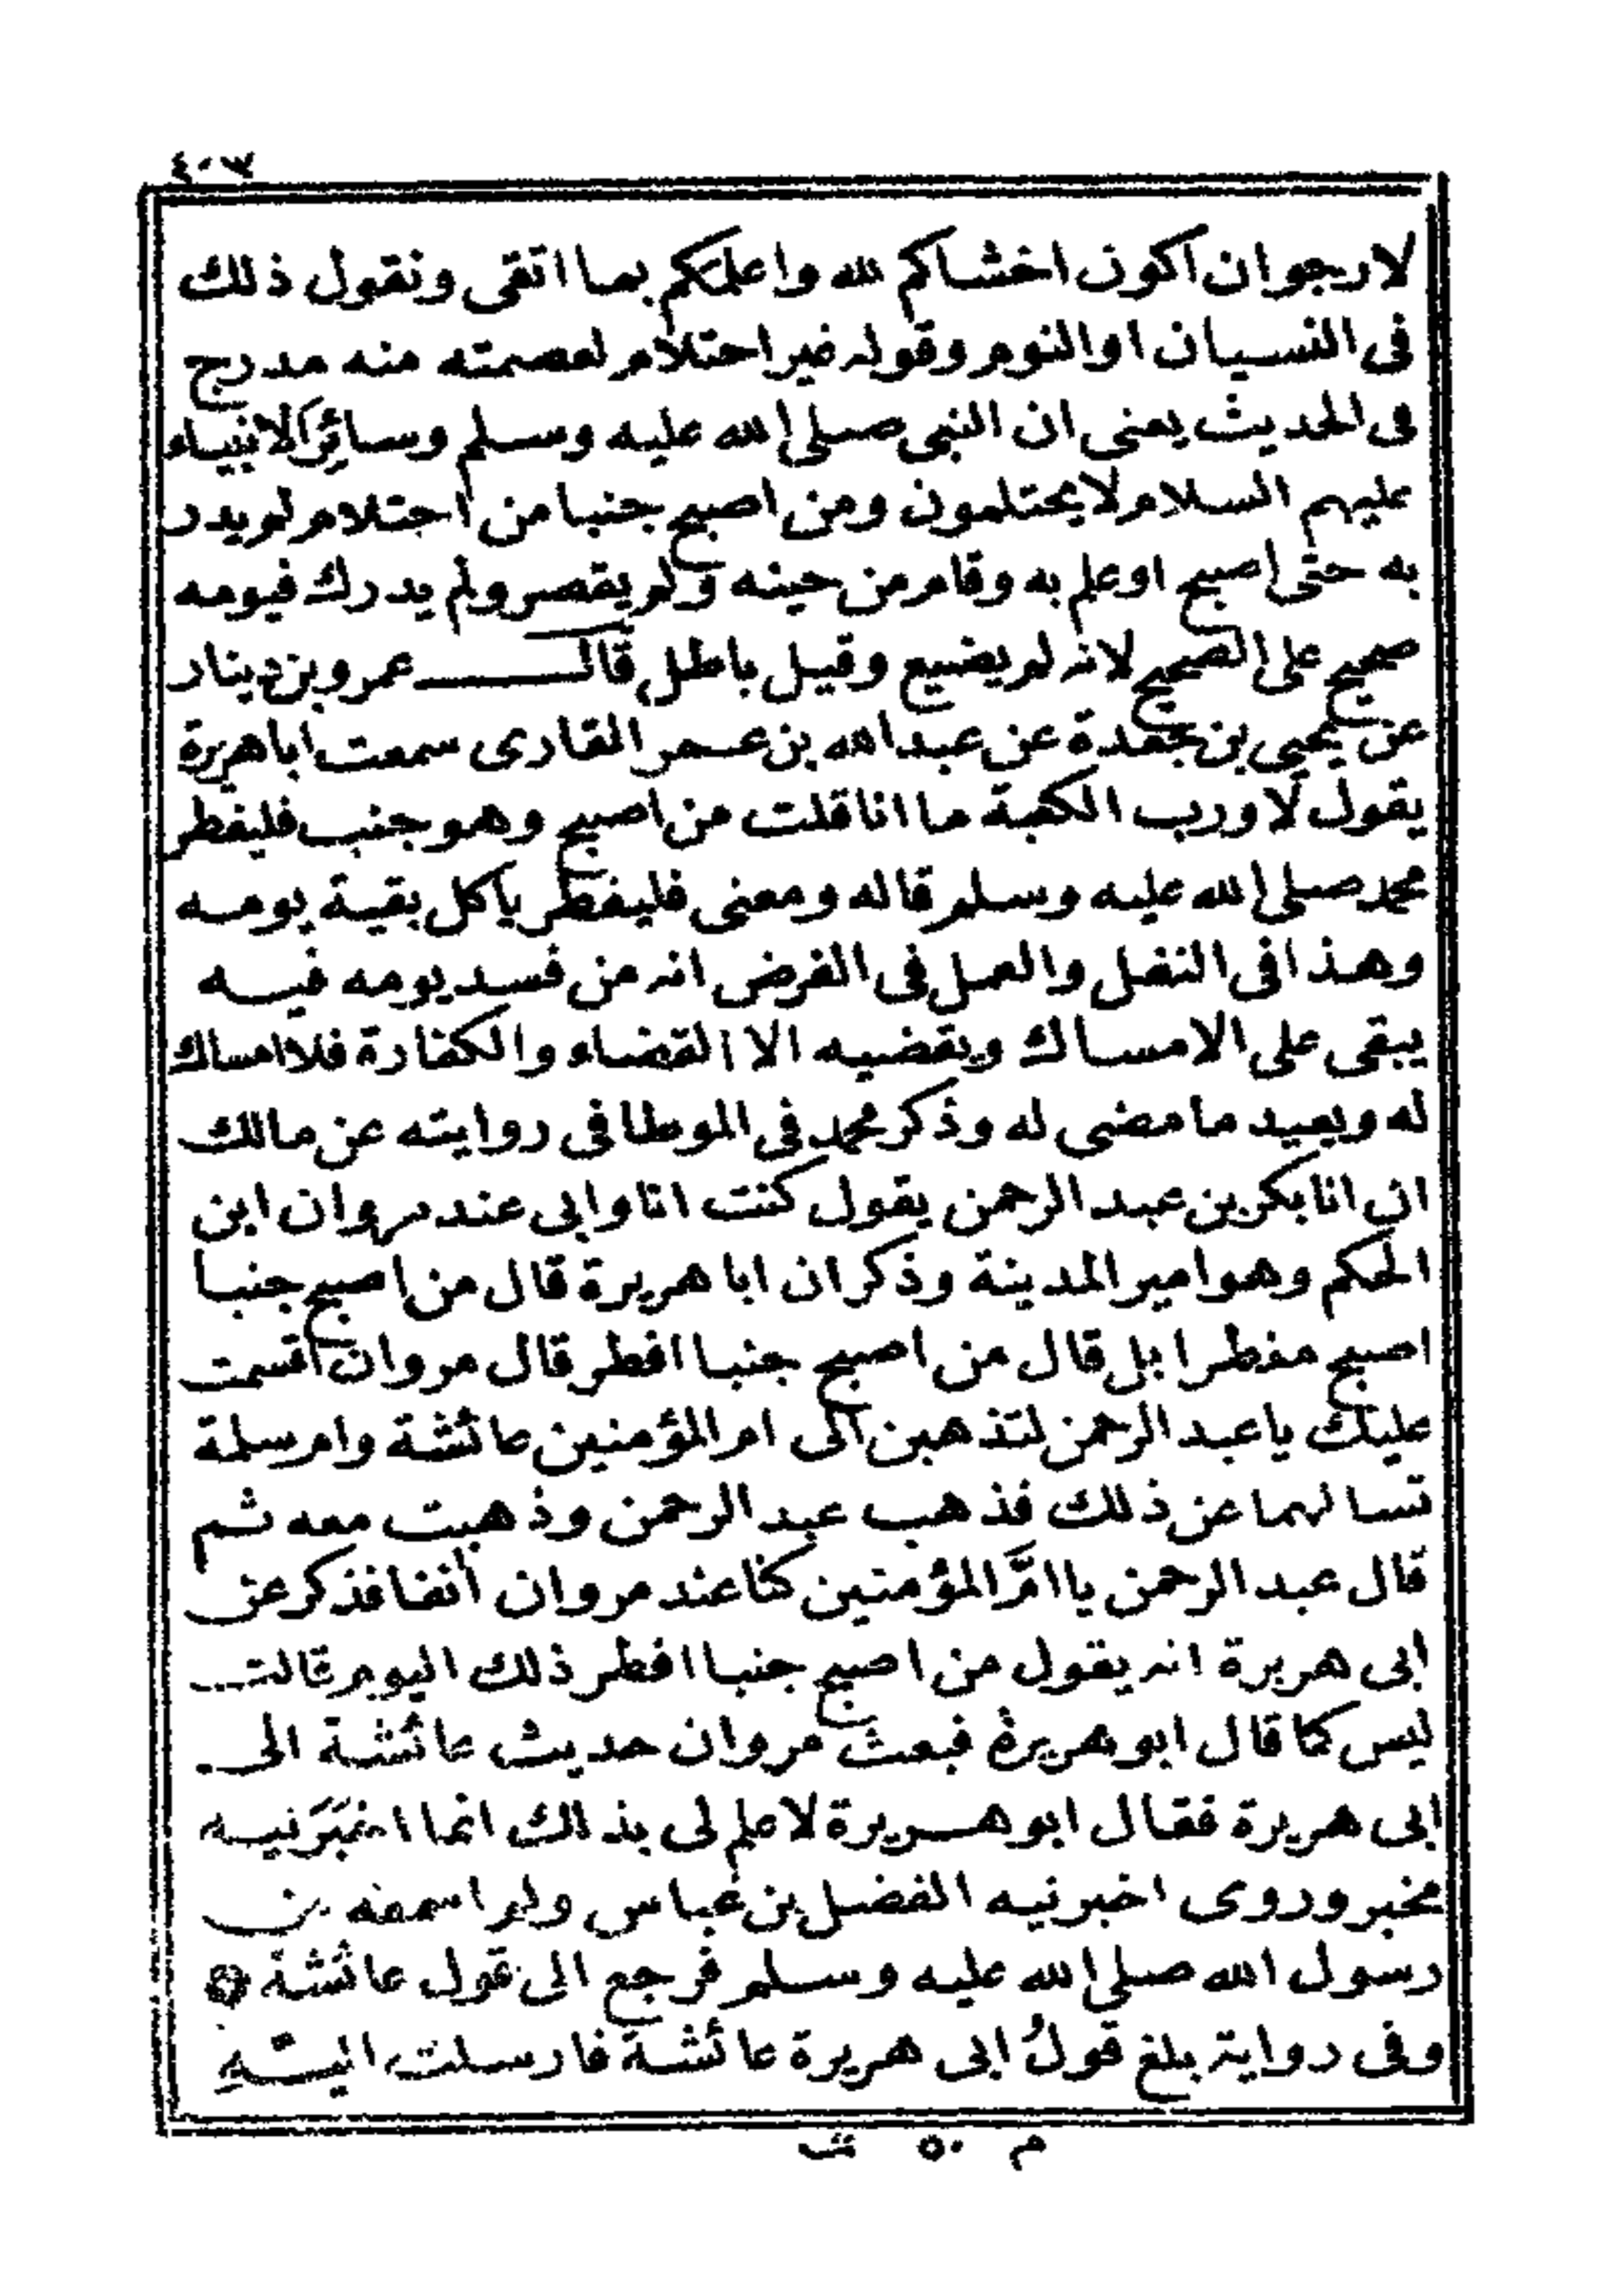 ٤٠٣
لارجو ان اكون اخشاكم لله واعلمكم بما اتقى ونقول ذلك
فى النسيان او النوم وقوله غير احتلام لعصمته منه مدرج
فى الحديث يعنى ان النبى صلى الله عليه وسلم وسائر الانبياء
عليهم السلام لا يحتلمون ومن اصبح جنبا من احتلام لم يدر
به حتى اصبح او علم به وقام من حينه ولم يقصر ولم يدرك فيومه
صحيح على الصحيح لانه لم يضيع وقيل باطل قال عمرو بن دينار
عن يحيى بن جعدة عن عبد الله بن عمر القارى سمعت ابا هريرة
يقول لا ورب الكعبة ما انا قلت من اصبح وهو جنب فليفطر
محمد صلى الله عليه وسلم قاله ومعنى فليفطر ياكل بقية يومه
وهذا فى النفل والعمل فى الفرض انه من فسد يومه فيه
يبقى على الامساك ويقضيه الا القضاء والكفارة فلا امساك
له ويعيد ما مضى له وذكر محمد فى الموطا فى روايته عن مالك
ان انا بكر بن عبد الرحمن يقول كنت انا وابى عند مروان ابن
الحكم وهو امير المدينة وذكر ان ابا هريرة قال من اصبح جنبا
اصبح مفطرا بل قال من اصبح جنبا افطر قال مروان اقسمت
عليك يا عبد الرحمن لتذهبن الى ام المؤمنين عائشة وام سلمة
تسالهما عن ذلك فذهب عبد الرحمن وذهبت معه ثم
قال عبد الرحمن يا امَّ المؤمنين كنا عند مروان أنفا فذكر عن
ابى هريرة انه يقول من اصبح جنبا افطر ذلك اليوم قالت
ليس كما قال ابو هريرة فبعث مروان حديث عائشة الى
ابى هريرة فقال ابو هريرة لا علم لى بذلك انما اخْبَرَنيه
مخبر وروى اخبرنيه الفضل بن عباس ولم اسمعه من
رسول الله صلى الله عليه وسلم فرجع الى قول عائشة
وفى رواية بلغ قولُ ابى هريرة عائشة فارسلت اليهِ
م ٥٠ ش